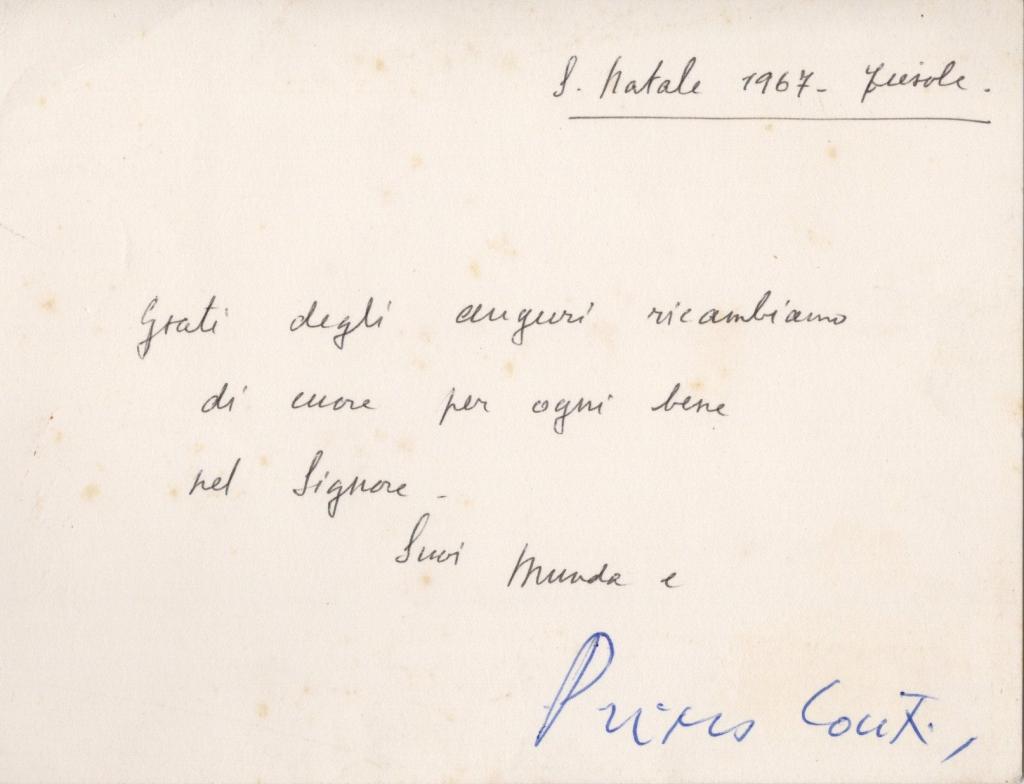 S. Natale 1967- Fiesole.
Grati degli auguri ricambiamo
di cuore per ogni bene
nel Signore -
Suoi Munda e
Primo Conti,